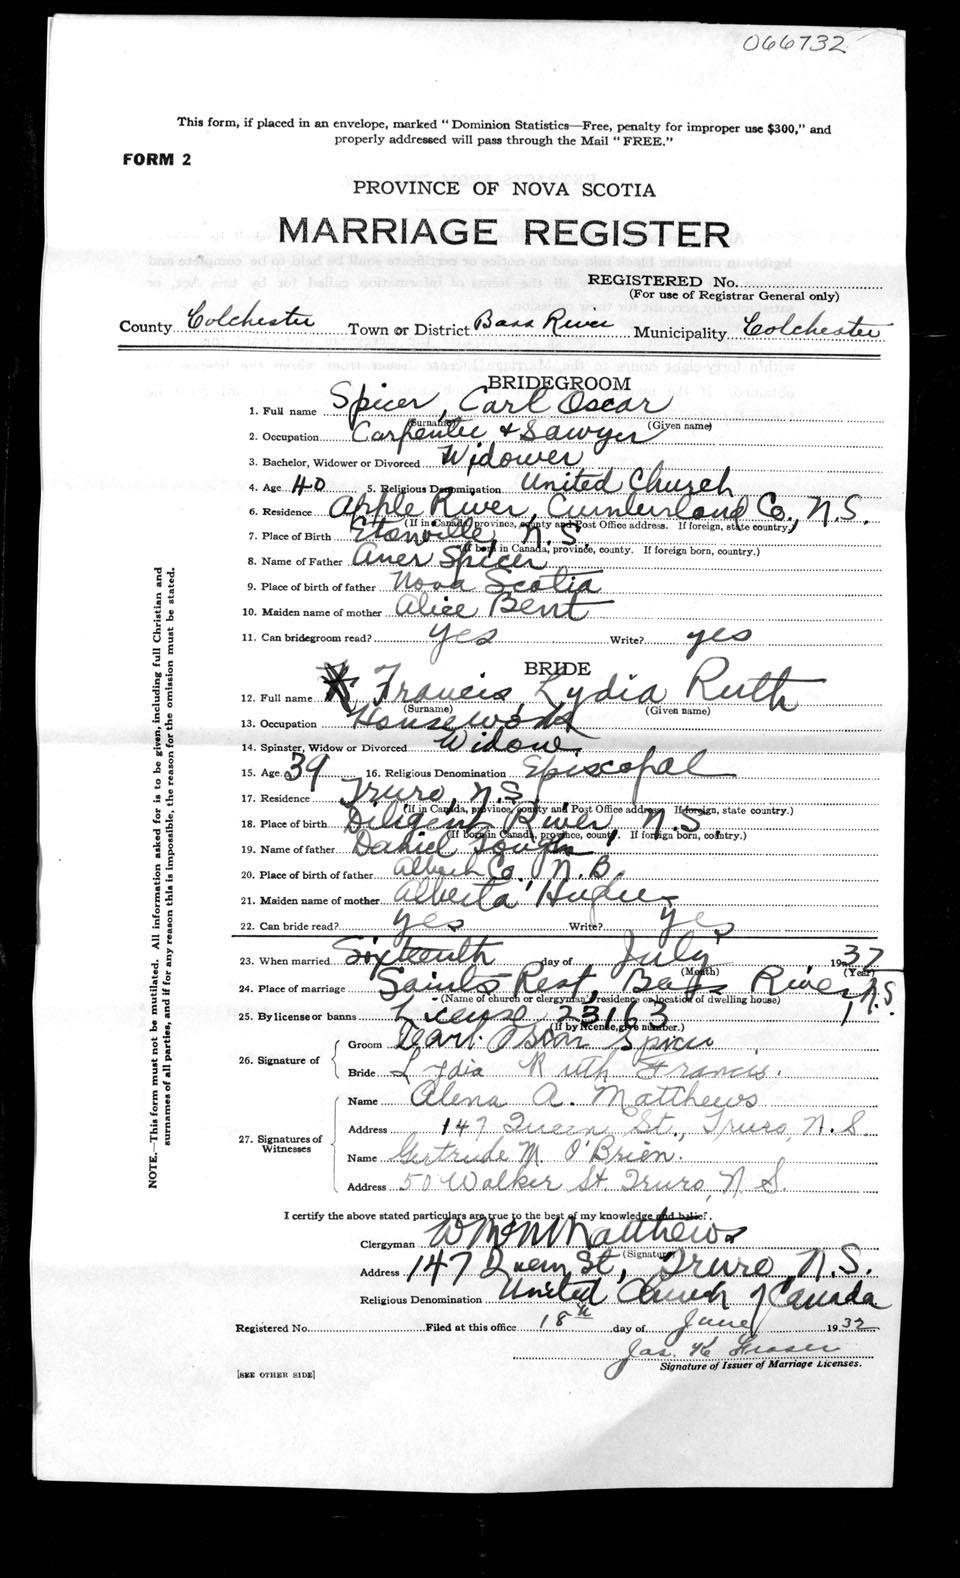 066732
This form, if placed in an envelope, marked "Dominion Statistics—Free, penalty for improper use $300," and
properly addressed will pass through the Mail "FREE."
FORM 2
PROVINCE OF NOVA SCOTIA
MARRIAGE REGISTER
REGISTERED No.
(For use of Registrar General only)
County Colchester Town or District Bass River Municipality Colchester
BRIDEGROOM
1. Full name Spicer, Carl Oscar
(Surname) (Given name)
2. Occupation Carpenter & Sawyer
3. Bachelor, Widower or Divorced Widower
4. Age 40 5. Religious Denomination United Church
6. Residence Apple River, Cumberland Co., N.S.
(If in Canada, province, county and Post Office address. If foreign, state country.)
7. Place of Birth Etonville, N.S.
(If born in Canada, province, county. If foreign born, country.)
8. Name of Father Aner Spicer
9. Place of birth of father Nova Scotia
10. Maiden name of mother Alice Bent
11. Can bridegroom read? yes Write? yes
BRIDE
12. Full name Francis Lydia Ruth
(Surname) (Given name)
13. Occupation Housework
14. Spinster, Widow or Divorced Widow
15. Age 39 16. Religious Denomination Episcopal
17. Residence Truro, N.S.
(If in Canada, province, county and Post Office address. If foreign, state country.)
18. Place of birth Diligent River, N.S.
(If Born in Canada, province, county. If foreign born, country.)
19. Name of father Daniel
20. Place of birth of father Albert Co. N.B.
21. Maiden name of mother Alberta
22. Can bride read? yes Write? yes
23. When married Sixteenth day of July 1937
(Month) (Year)
24. Place of marriage Saints Rest, Bass River, N.S.
(Name of church or clergyman's residence or location of dwelling house)
25. By license or banns License 23163
(If by license, give number.)
26. Signature of
Groom Carl Oscar Spicer
Bride Lydia Ruth Francis.
27. Signatures of Witnesses
Name Alena A. Matthews
Address 147 Queen St., Truro, N.S.
Name Gertrude M. O'Brien.
Address 50 Walker St. Truro, N.S.
I certify the above stated particulars are true to the best of my knowledge and belief.
Clergyman Matthews
(Signature)
Address 147 Queen St, Truro, N.S.
Religious Denomination United Church of Canada
Registered No. Filed at this office 18th day of June 1937
Jas. Fraser
Signature of Issuer of Marriage Licenses.
[SEE OTHER SIDE]
NOTE.—This form must not be mutilated. All information asked for is to be given, including full Christian and
surnames of all parties, and if for any reason this is impossible, the reason for the omission must be stated.